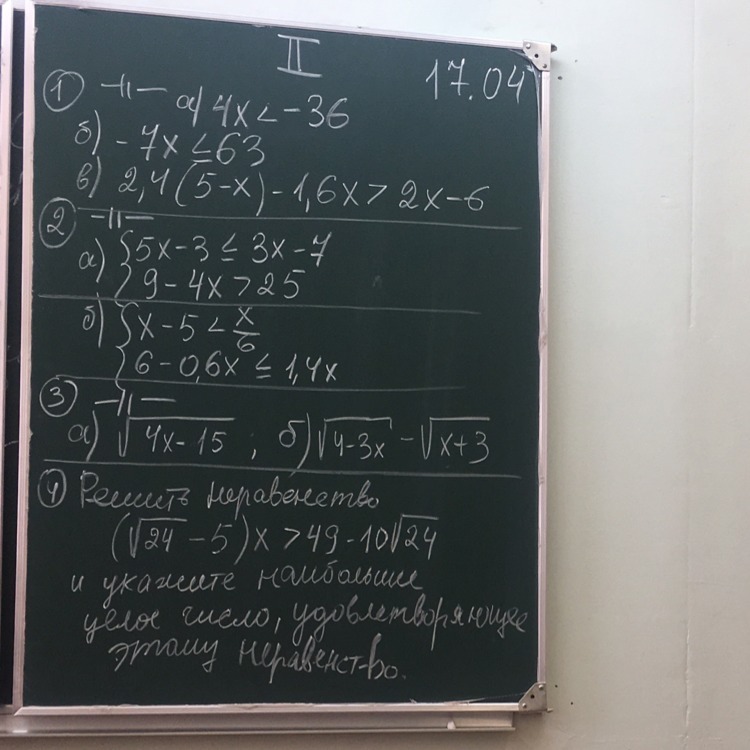 II
17.04
① —||— а) 4x < -36
б) -7x ≤ 63
в) 2,4(5-x) - 1,6x > 2x-6
② —||—
а) { 5x-3 ≤ 3x-7
9-4x > 25
б) { x-5 < x/6
6-0,6x ≤ 1,4x
③ —||—
а) √(4x-15) ; б) √(4-3x) - √(x+3)
④ Решить неравенство
(√24 - 5)x > 49-10√24
и укажите наибольшее
целое число, удовлетворяющее
этому неравенство.